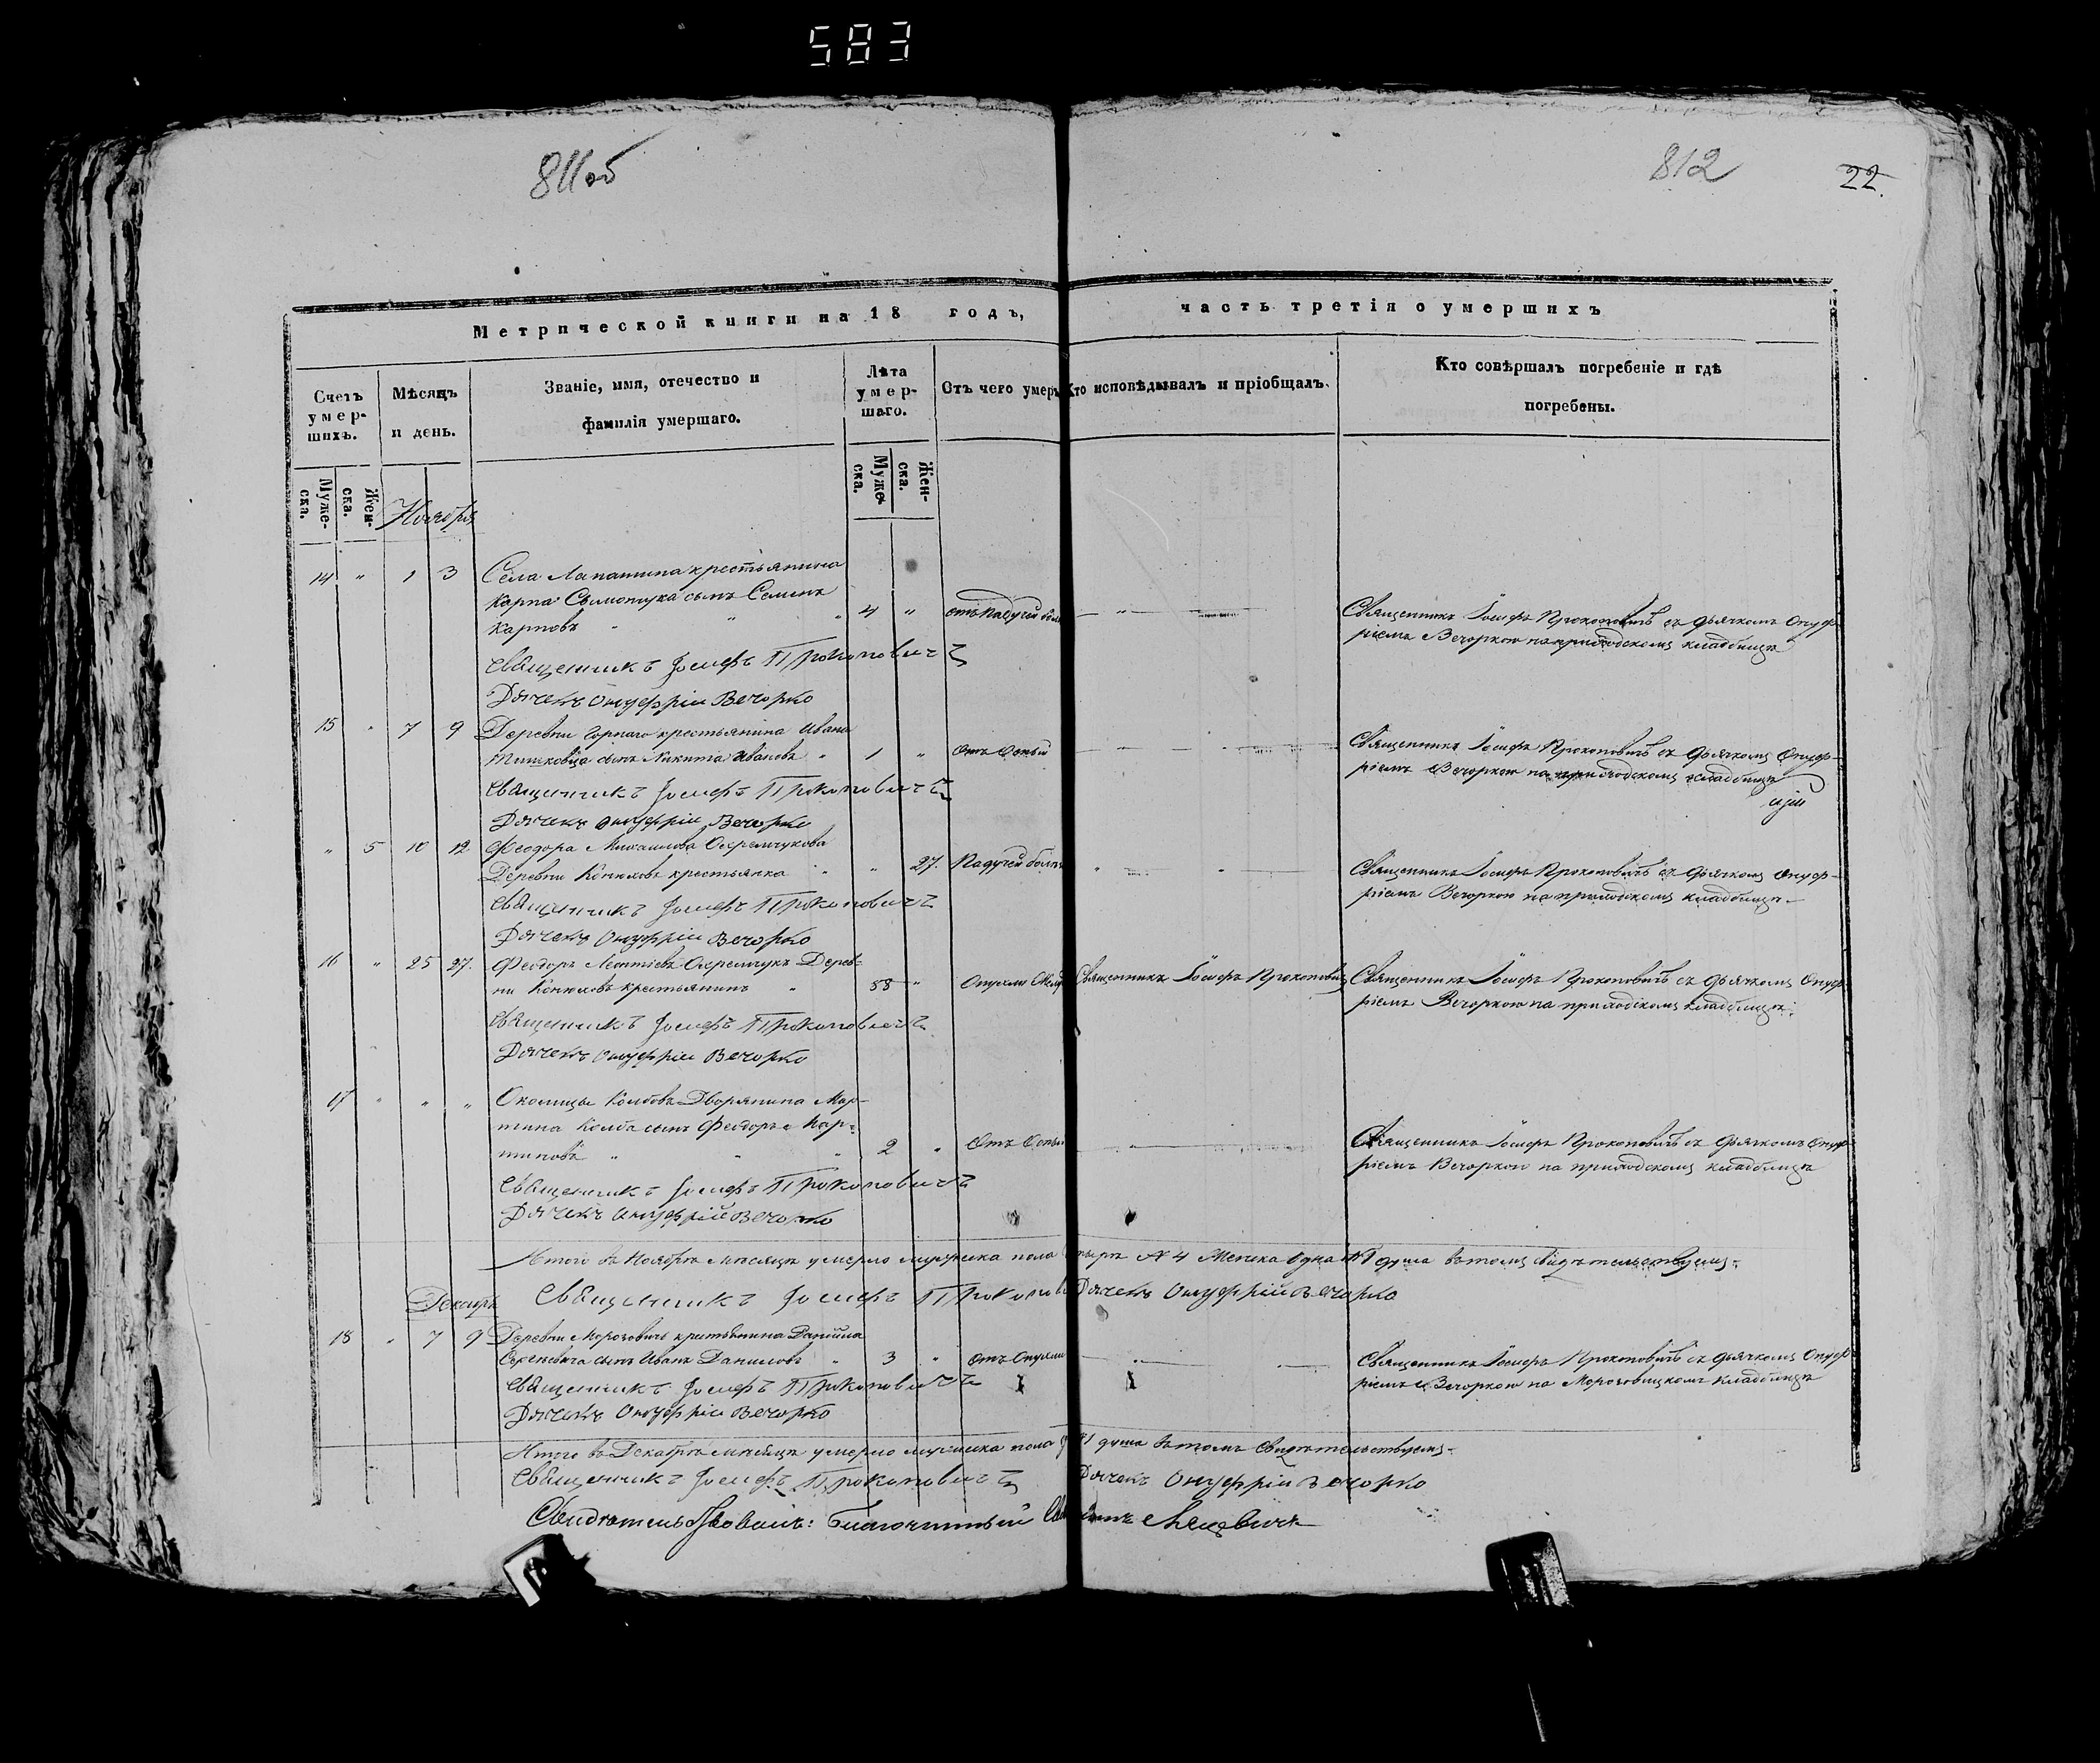 583
811об
812
22.
Метрической книги на 18 годъ,
часть третія о умершихъ
Счетъ умер-шихъ.
Мѣсяцъ и день.
Званіе, имя, отечество и фамилія умершаго.
Лѣта умер-шаго.
Отъ чего умеръ
Кто исповѣдывалъ и пріобщалъ.
Кто совѣршалъ погребеніе и гдѣ погребены.
Муже-ска.
Жен-ска.
Муже-ска.
Жен-ска.
Ноября
14 " 1 3 Села Лапатина крестьянина
Карпа сынъ Семенъ
Карповъ " " " 4 " отъ Падучей
Священникъ Іосифъ Прокоповичъ съ дьячкомъ Онуф-
ріемъ Вечоркою на приходскомъ кладбищѣ
Священникъ Іосифъ Прокоповичъ
Дячекъ Онуфрій Вечорко
15 " 7 9 Деревни Горнаго крестьянина Ивана
сынъ Никита Ивановъ " 1 "
Священникъ Іосифъ Прокоповичъ съ дьячкомъ Онуф-
ріемъ Вечоркою на приходскомъ кладбищѣ
Священникъ Іосифъ Прокоповичъ
Дячекъ Онуфрій Вечорко
" 5 10 12 Феодора Михаилова Охремчукова
Деревни крестьянка " " 27. Падучей
Священникъ Іосифъ Прокоповичъ съ дьячкомъ Онуф-
ріемъ Вечоркою на приходскомъ кладбищѣ
Священникъ Іосифъ Прокоповичъ
Дячекъ Онуфрій Вечорко
16 " 25 27. Феодоръ Леонтіевъ Охремчукъ Дерев-
ни крестьянинъ " 58 " Опухли
Священникъ Іосифъ Прокоповичъ
Священникъ Іосифъ Прокоповичъ съ дьячкомъ Онуф-
ріемъ Вечоркою на приходскомъ кладбищѣ
Священникъ Іосифъ Прокоповичъ
Дячекъ Онуфрій Вечорко
17 " " " Околицы Колбовъ Дворянина Мар-
тина Колба сынъ Феодоръ Мар-
тиновъ " " " 2 "
Священникъ Іосифъ Прокоповичъ съ дьячкомъ Онуф-
ріемъ Вечоркою на приходскомъ кладбищѣ
Священникъ Іосифъ Прокоповичъ
Дячекъ Онуфрій Вечорко
Итого въ Ноябрѣ мѣсяцѣ умерло мужеска пола № 4 Женска одна № 1 душа въ томъ свидѣтельствуемъ
Священникъ Іосифъ Дячекъ Онуфрій Вечорко
Декабрь
18 " 7 9 Деревни Морозовичъ крестьянина Даніила
сынъ Иванъ Даниловъ " 3 " отъ Опухли
Священникъ Іосифъ Прокоповичъ съ дьячкомъ Онуф-
ріемъ Вечоркою на Морозовицкомъ кладбищѣ
Священникъ Іосифъ Прокоповичъ
Дячекъ Онуфрій Вечорко
Итого въ Декабрѣ мѣсяцѣ умерло мужеска пола 1 душа въ томъ свидѣтельствуемъ
Священникъ Іосифъ Прокоповичъ Дячекъ Онуфрій Вечорко
Свидѣтельствовалъ: Благочинный